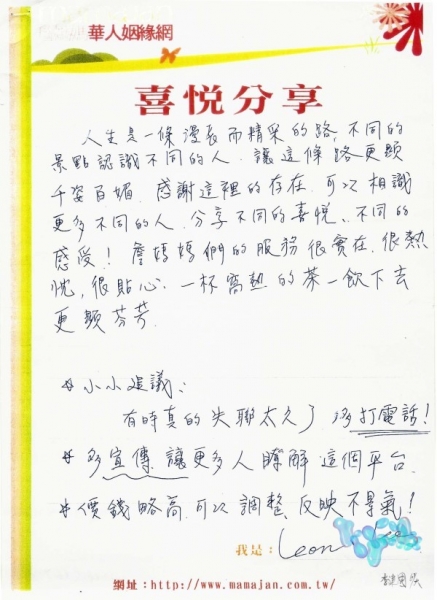 華人姻緣網
喜悅分享
人生是一條漫長而精采的路,不同的
景點認識不同的人,讓這條路更顯
千姿百媚.感謝這裡的存在,可以相識
更多不同的人,分享不同的喜悅、不同的
感受!詹媽媽們的服務很實在,很熱
忱,很貼心.一杯窩熱的茶一飲下去
更顯芬芳.
* 小小建議:
有時真的失聯太久了 多打電話!
* 多宣傳,讓更多人瞭解這個平台.
* 價錢略高,可以調整,反映不景氣!
我是: Leon Lee
網址:http://www.mamajan.com.tw/